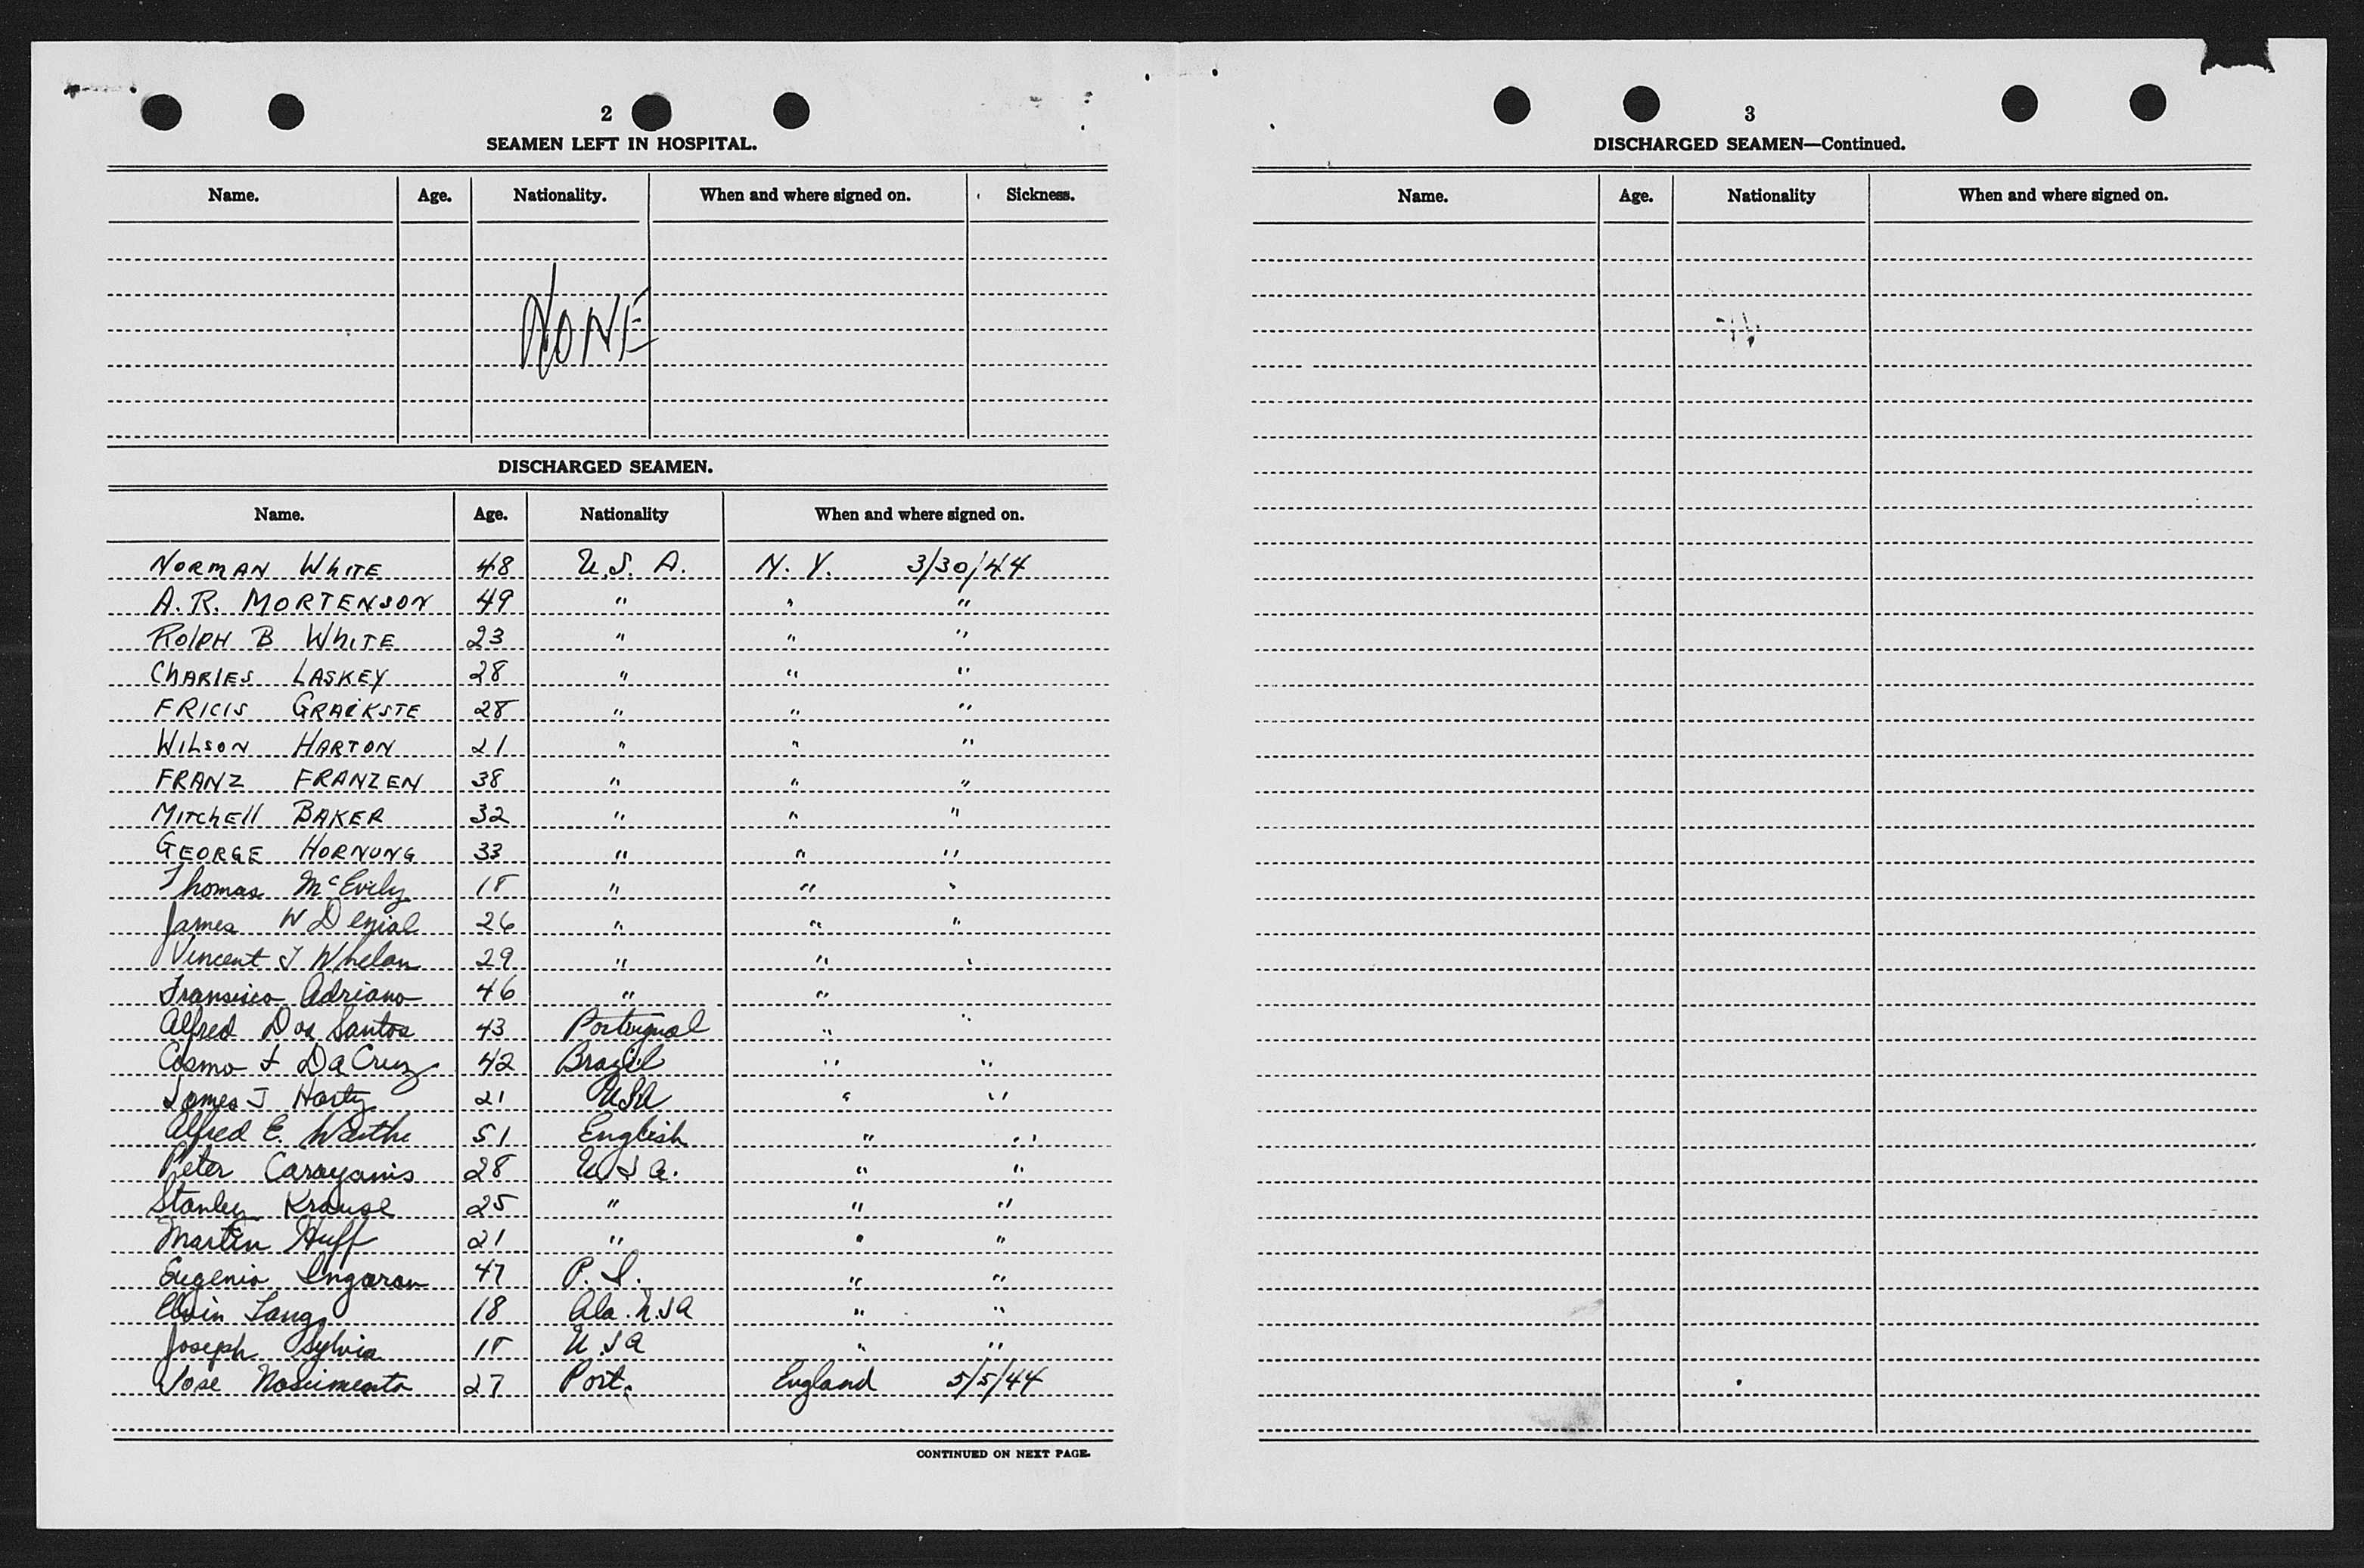 2
SEAMEN LEFT IN HOSPITAL.
Name. Age. Nationality. When and where signed on. Sickness.
NONE
DISCHARGED SEAMEN.
Name. Age. Nationality When and where signed on.
NORMAN WHITE 48 U.S. A. N. Y. 3/30/44
A. R. MORTENSON 49 " " "
ROLPH B WHITE 23 " " "
CHARLES LASKEY 28 " " "
FRICIS GRAIKSTE 28 " " "
WILSON HARTON 21 " " "
FRANZ FRANZEN 38 " " "
MITCHELL BAKER 32 " " "
GEORGE HORNUNG 33 " " "
Thomas McEvily 18 " " "
James W Denial 26 " " "
Vincent J Whelan 29 " " "
Fransisco Adriano 46 " "
Alfred Dos Santos 43 Portugual " "
Cosmo F DaCruz 42 Brazil " "
James J Harty 21 USA " "
Alfred E. 51 English " "
Peter Carayanis 28 U S A. " "
Stanley Krause 25 " " "
Martin Huff 21 " " "
Eugenio Ingaran 47 P. I. " "
Elvin Lang 18 Ala. U.S.A " "
Joseph Sylvia 18 U.S.A " "
Jose Nascimento 27 Port. England 5/5/44
CONTINUED ON NEXT PAGE.
3
DISCHARGED SEAMEN—Continued.
Name. Age. Nationality When and where signed on.